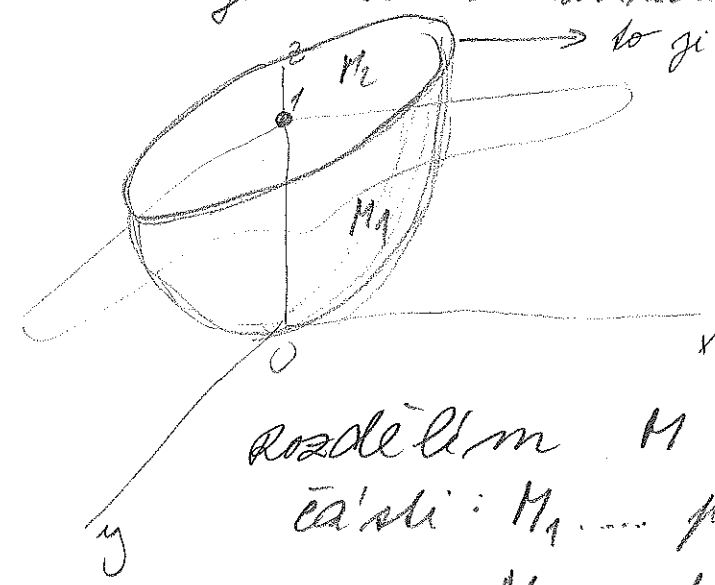 → to je
z
M₂
1
M₁
O
x
rozdělím M
části: M₁ ....
y